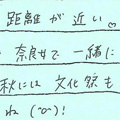 距離が近い。
奈良で一緒に
秋には文化祭も
ね(^o^)!